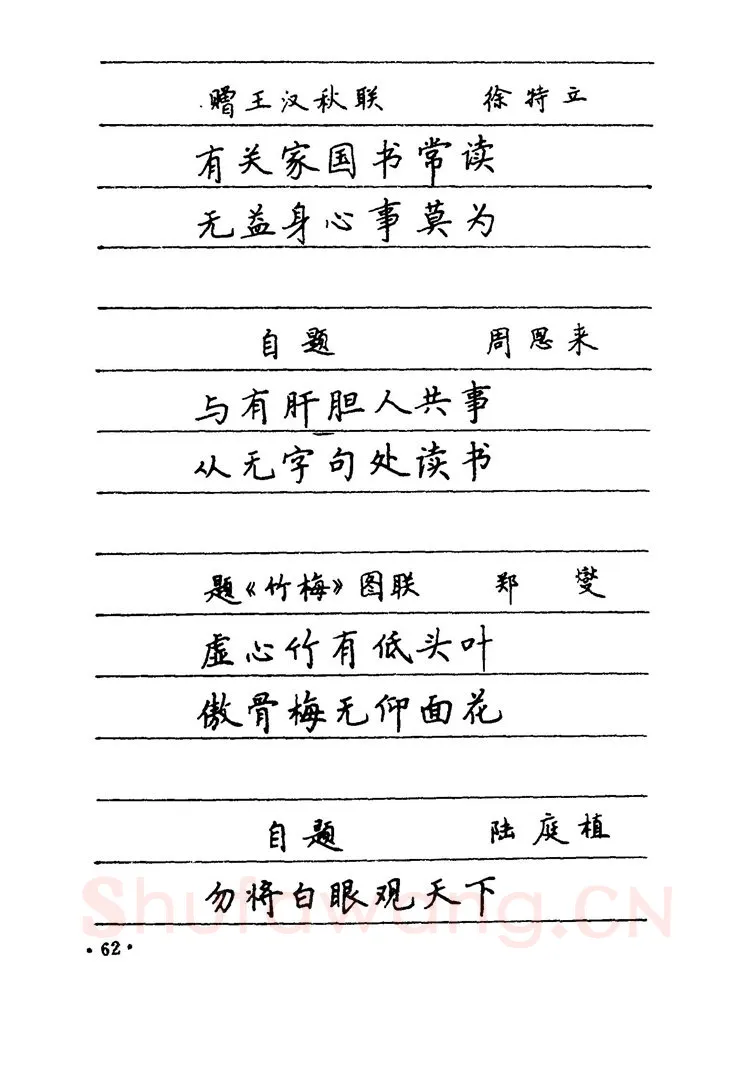 赠王汉秋联 徐特立
有关家国书常读
无益身心事莫为
自题 周恩来
与有肝胆人共事
从无字句处读书
题《竹梅》图联 郑燮
虚心竹有低头叶
傲骨梅无仰面花
自题 陆庭植
勿将白眼观天下
Shufawang.CN
·62·